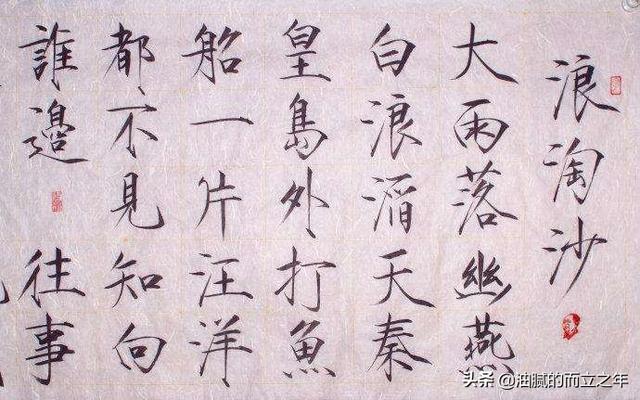 浪淘沙
大雨落幽燕
白浪滔天秦
皇島外打魚
船一片汪洋
都不見知向
誰邊 往事
头条 @油腻的而立之年